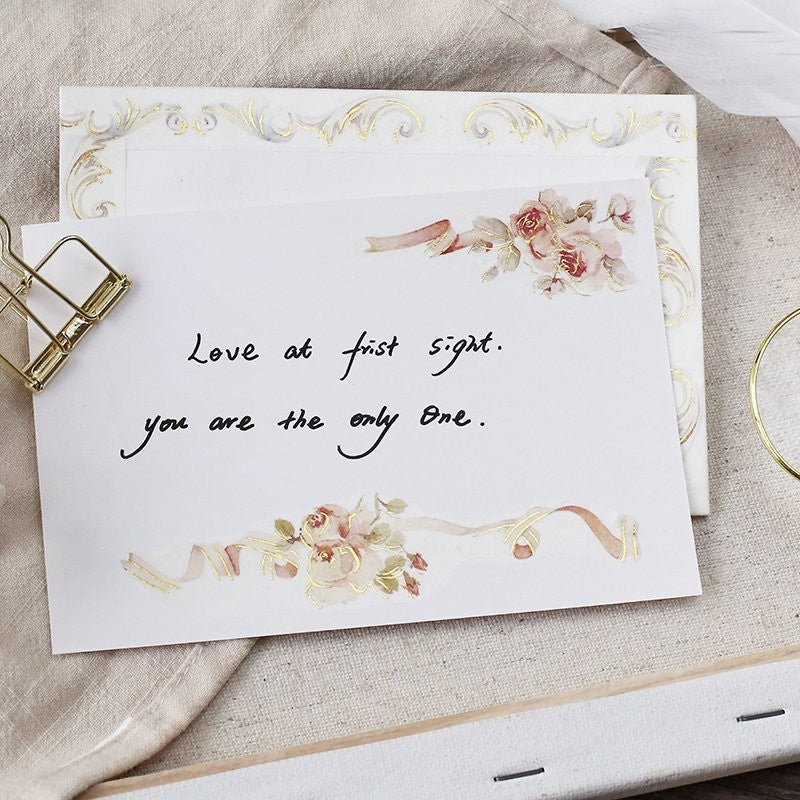 Love at frist sight.
you are the only One.